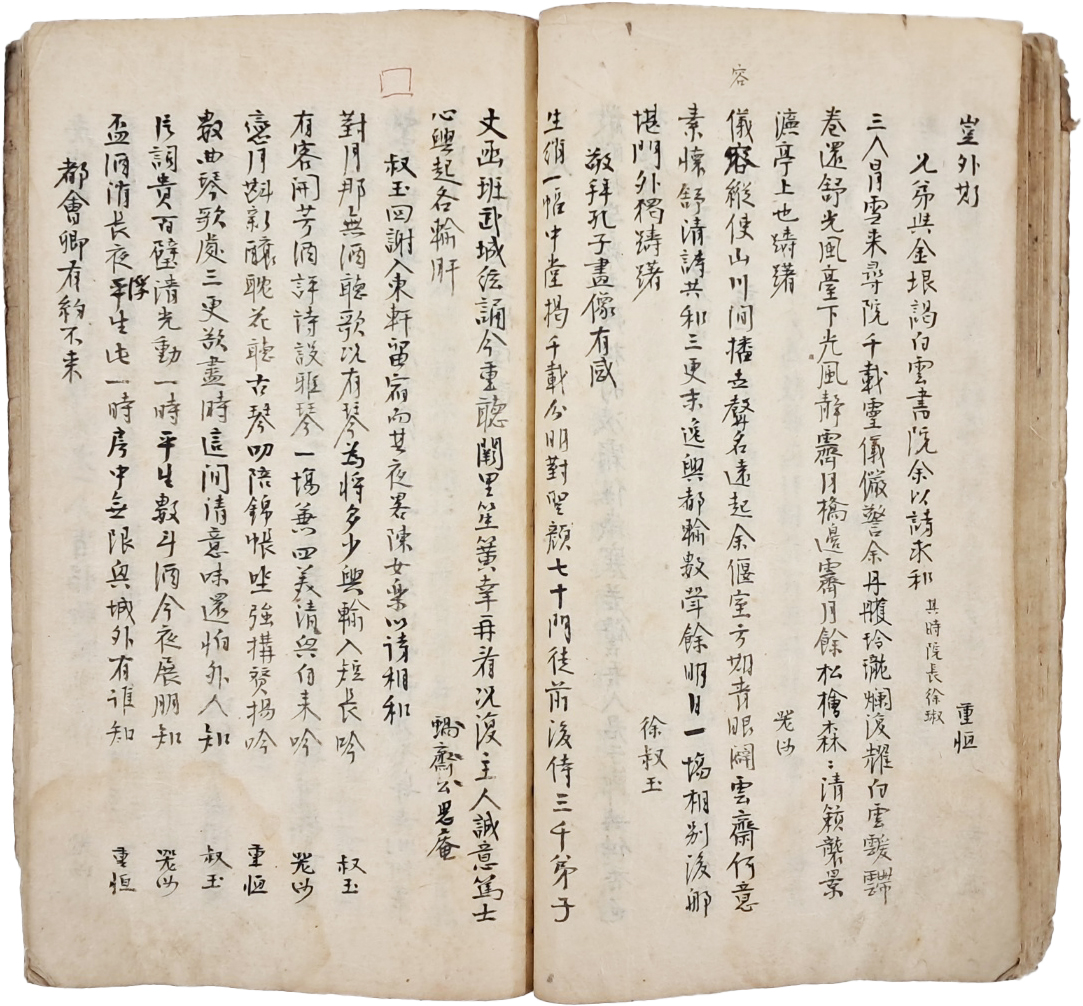 豈外 重恒
兄弟與金垠謁白雲書院余以詩求和 其時院長徐琡
三入冒雪来尋院千載靈儀儼警余丹雘玲瓏爛後耀白雲靉䨴
卷還舒光風臺下光風靜霽月橋邊霽月餘松檜森〻清籟襲景
濂亭上也躊躇
容
儀容縱使山川间播在聲名遠起余偃室方期青眼闢雲齋何意
素懷舒清詩共和三更末逸與都輸數斝餘明日一塲相别後那
堪門外獨躊躇 徐叔玉
敬拜孔子畫像有感
生綃一幅中堂揭千載分明對聖顔七十門徒前後侍三千弟子
丈函班武城絃誦今重聽闕里笙簧幸再看况復主人誠意篤士
心興起各輸肝 蝸齋公思庵
叔玉回謝入東軒留宿而其夜畧陳女樂以詩相和
對月那無酒聽歌况有琴為將多少興輸入短長吟 叔玉
有客開芳酒評詩設雅琴一塲兼四美清興自来吟
戀月斟新釀耽花聽古琴叨陪錦帳坐強搆發揚吟 重恒
數曲琴歌處三更欲盡時這间清意味還怕外人知 叔玉
詞貴百璧清光動一時平生數斗酒今夜展朋知
盃酒消長夜浮生此一時房中無限興城外有誰知 重恒
都會卿有約不来